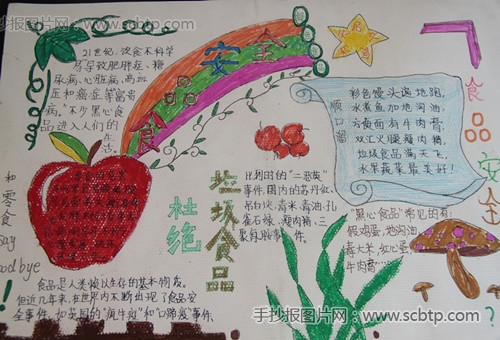 21世纪,饮食不科学
易导致肥胖症、糖
尿病、心脏病、高血
压和癌症等富贵
病。不少黑心食
品进入人们的
生活。
食品安全
顺口溜
彩色馒头满地跑,
水煮鱼加地沟油,
方便面有牛肉膏,
双汇火腿瘦肉精,
垃圾食品满天飞,
水果蔬菜最美好!
食品安全
和
零食
say
goodbye
!
杜绝
垃圾食品
比利时的“二恶英”
事件,国内的苏丹红、
吊白块、毒米、毒油、孔
雀石绿、瘦肉精、三
聚氰胺事件。
“黑心食品”常见的有:
假鸡蛋、地沟油、
毒大米、红心蛋、
牛肉膏…
食品是人类赖以生存的基本物质。
但近几年来,在世界内不断出现了食品安
全事件,如英国的“疯牛症”和“口蹄疫”事件、
手抄报图片网·www.scbtp.com
手抄报图片网:www.scbtp.com